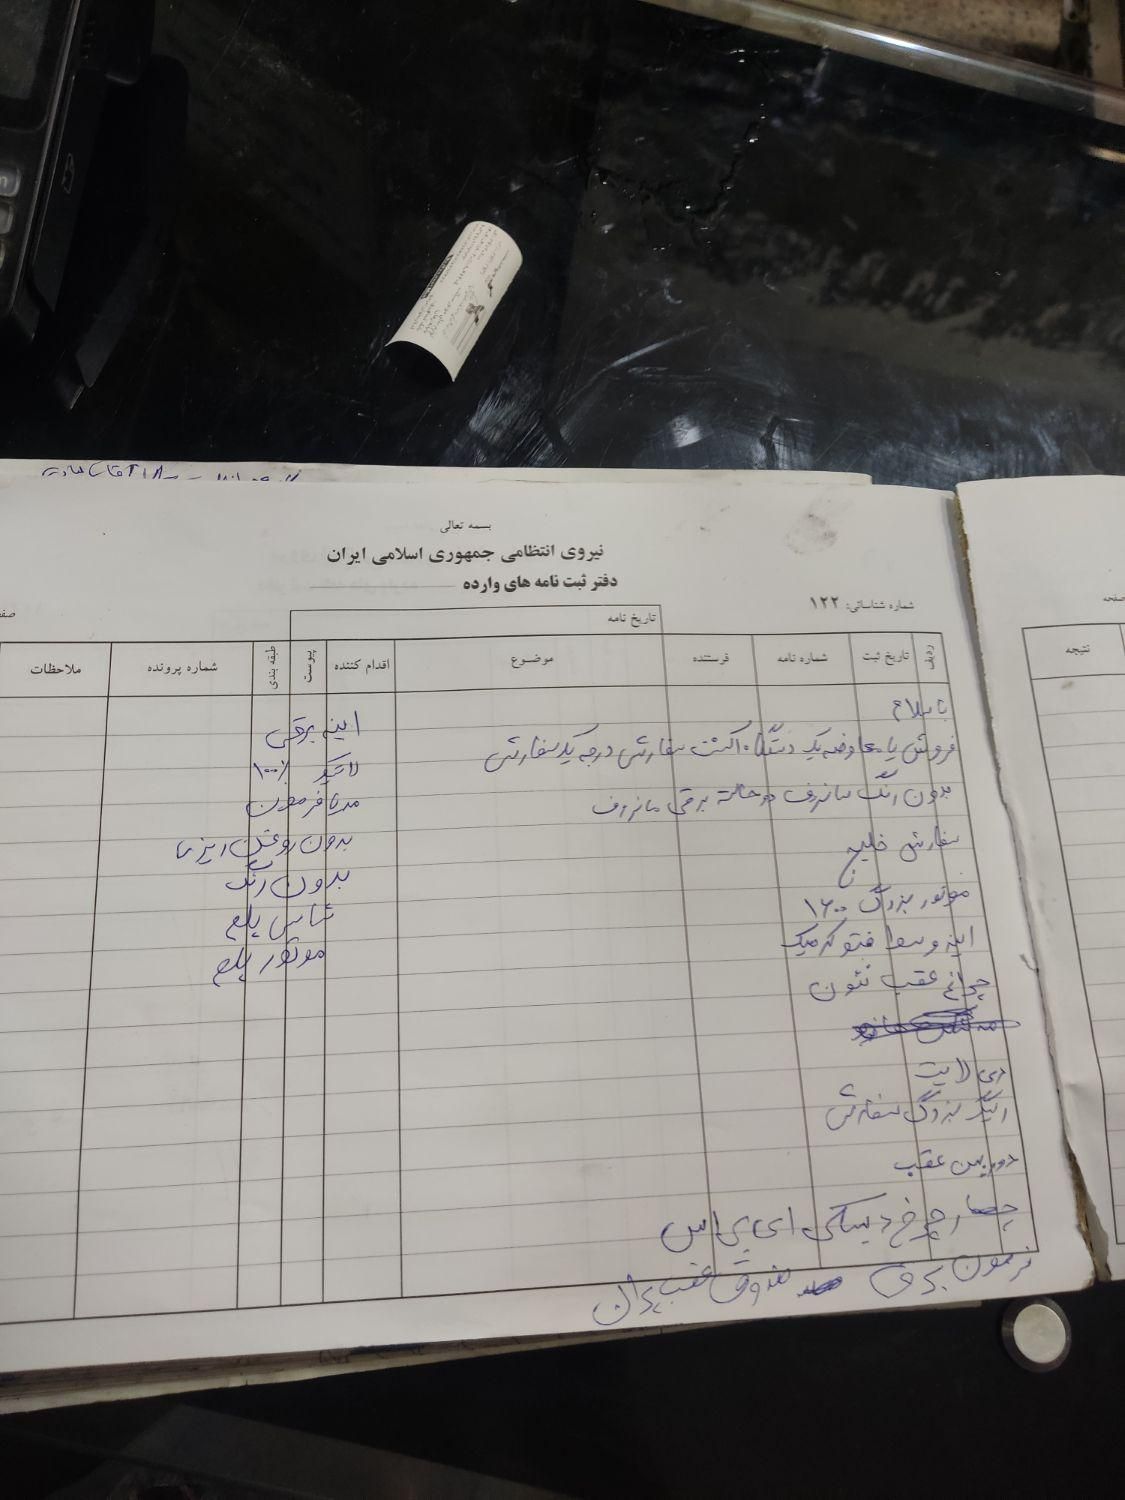 بسمه تعالی
نیروی انتظامی جمهوری اسلامی ایران
دفتر ثبت نامه های وارده
شماره شناسائی: ۱۲۲
صفحه
تاریخ نامه
ردیف
تاریخ ثبت
شماره نامه
فرستنده
موضوع
اقدام کننده
پیوست
طبقه بندی
شماره پرونده
ملاحظات
نتیجه
باسلام
فروش یا معاوضه یک دستگاه اکسنت سفارشی درجه یک سفارشی
بدون رنگ سانروف دو حالته برقی مانروف
سفارش خلیج
موتور بزرگ ۱۶۰۰
اینه وسط فتوکرمیک
چراغ عقب نئون
دی لایت
رینگ بزرگ سفارش
دوربین عقب
چهار چرخ دیسکی ای بی اس
فرمون برقی صندوق عقب پران
اینه برقی
لاتیک ۱۰۰٪
بدون روغن ریزی
بدون رنگ
شاسی پلمپ
موتور پلمپ